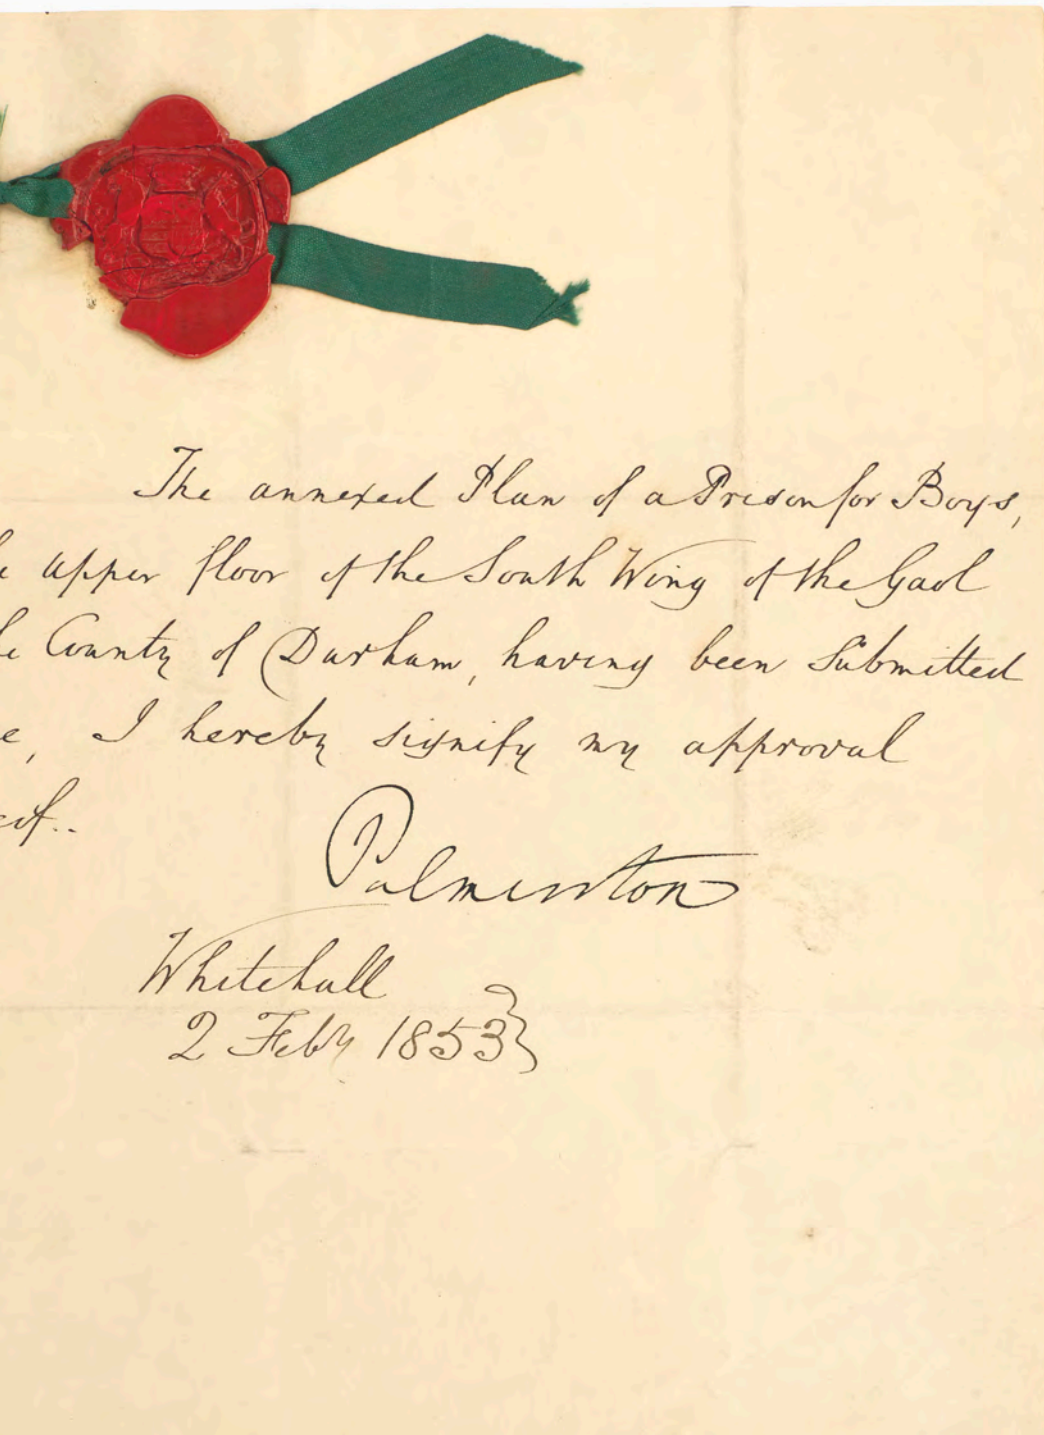 The annexed Plan of a Prison for Boys,
e upper floor of the South Wing of the Gaol
e County of Durham, having been submitted
e, I hereby signify my approval
eof..
Palmerston
Whitehall
2 Feby 1853}